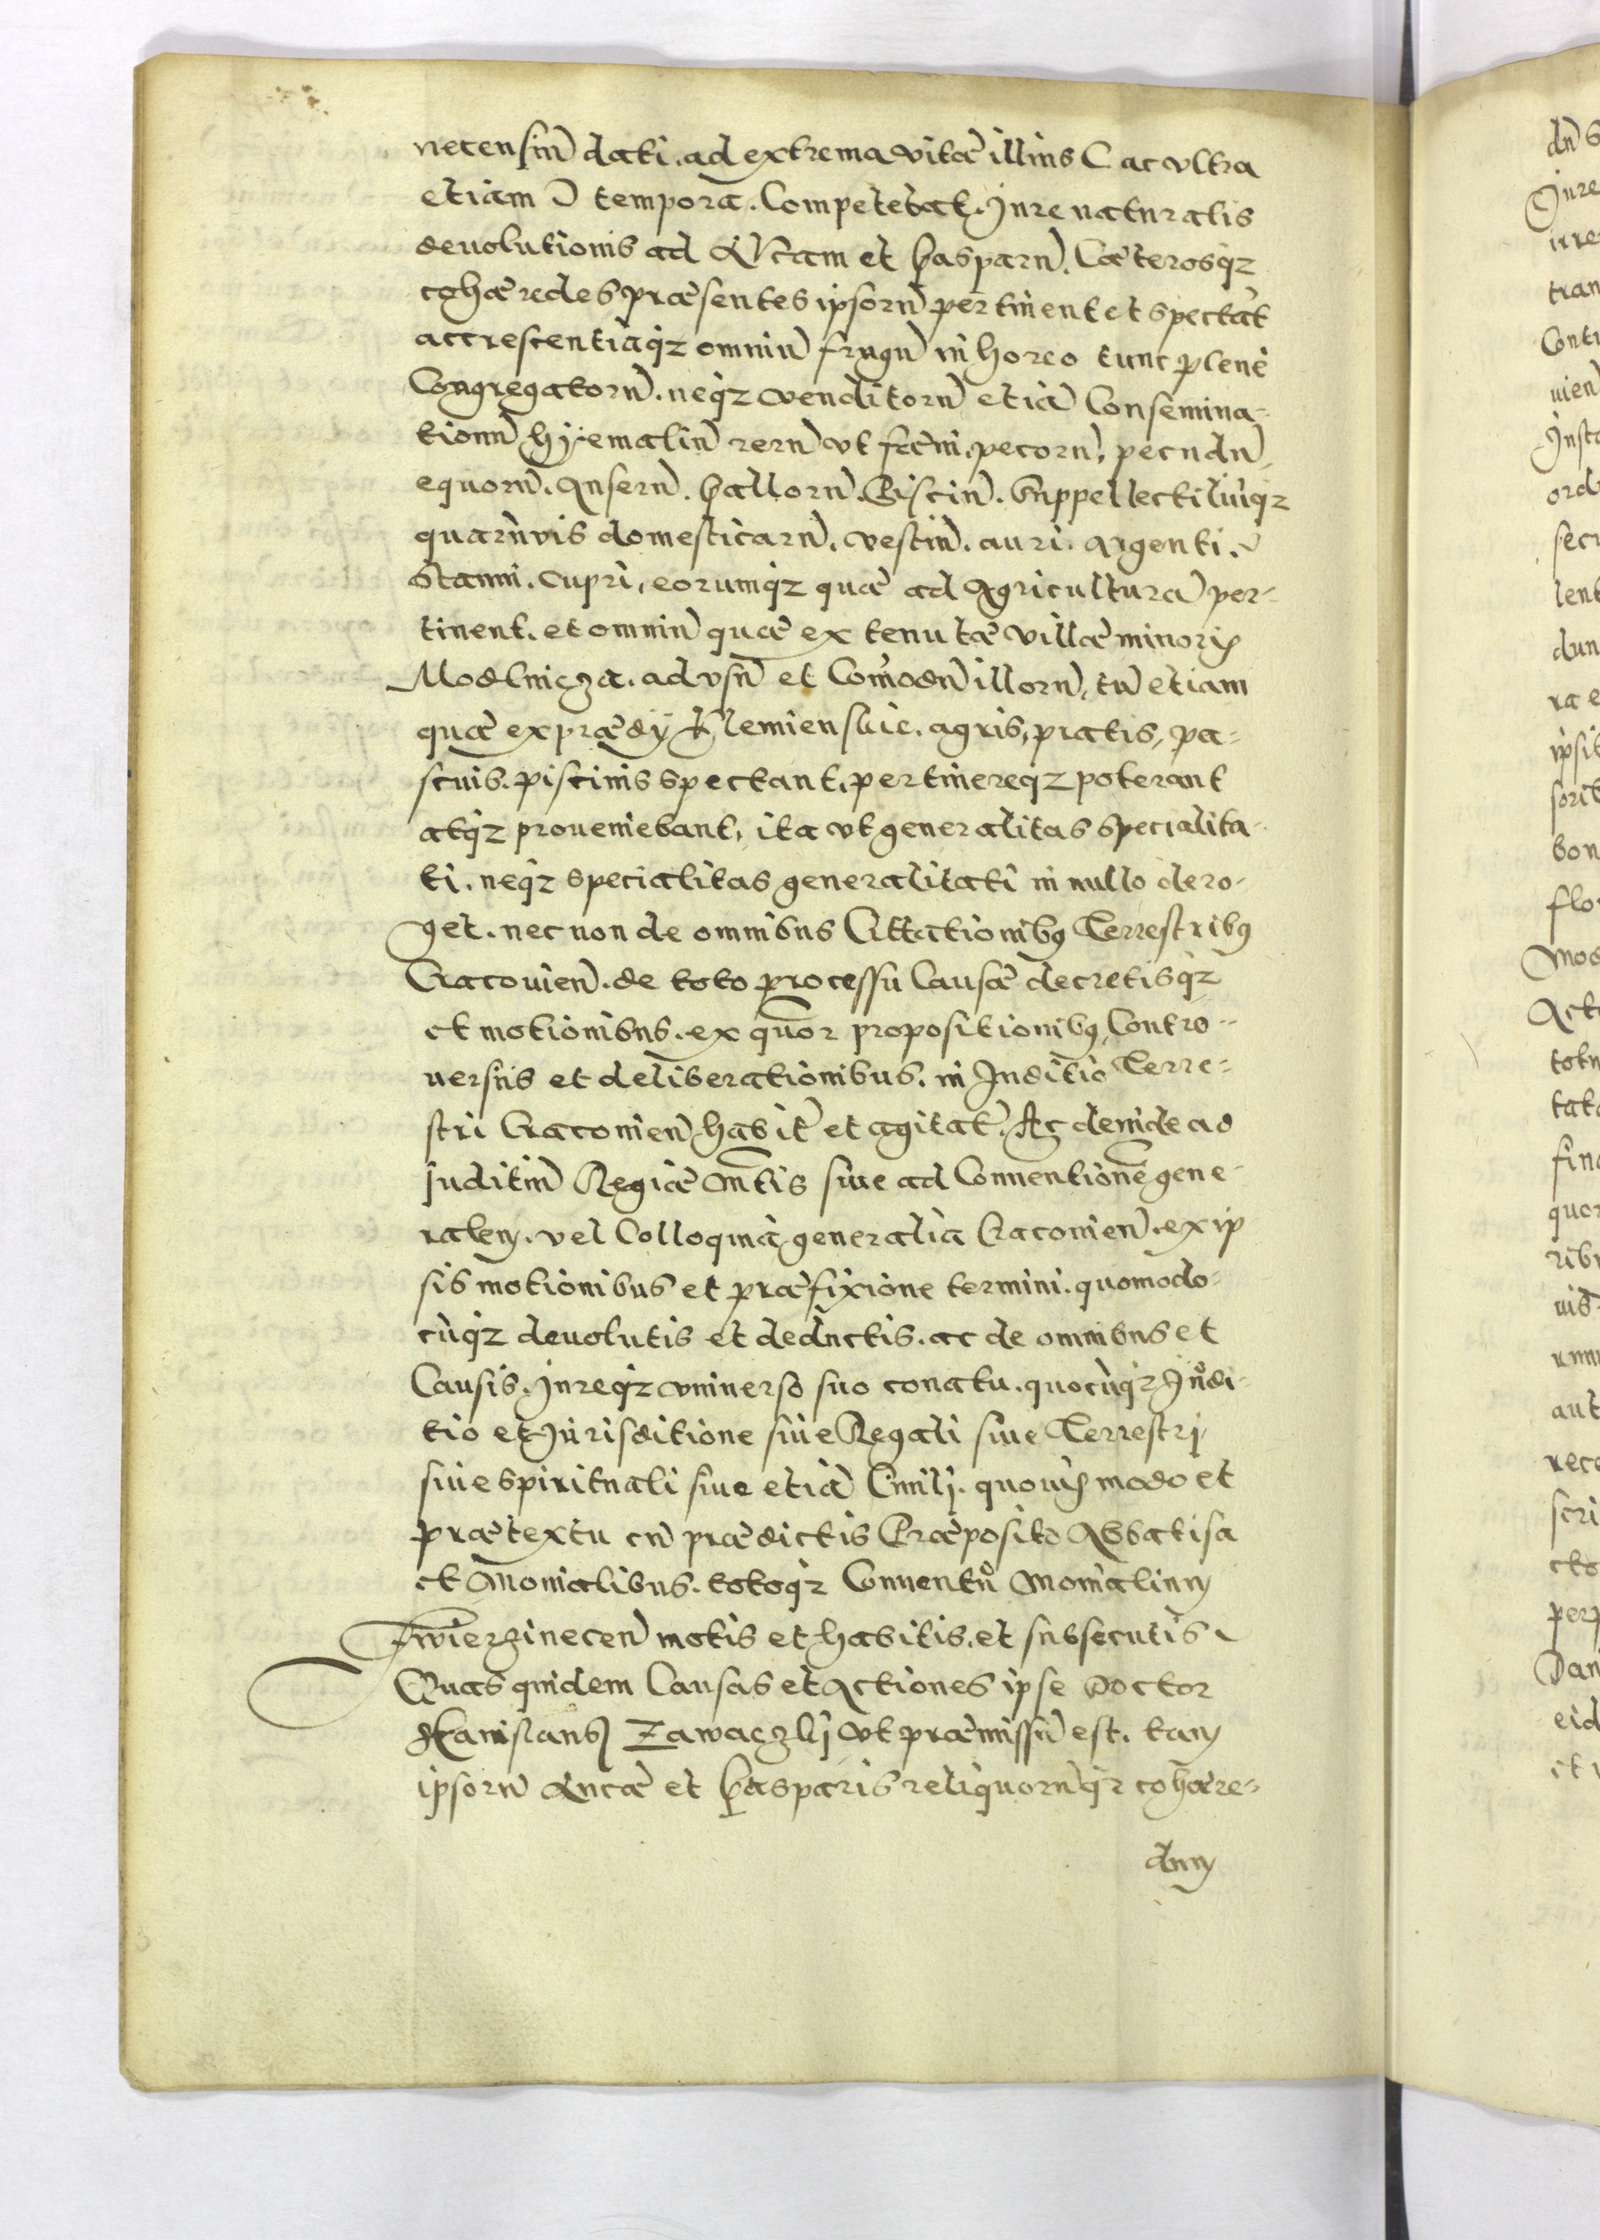 necensiu᷎m dati. ad extrema vitæ illius C ac vltra
etiam Ɔ tempora. Competebat. Jure naturalis
deuolutionis ad Lucam et Gasparu̅. Cæterosqz
cohæredes præsentes ipsoru̅ pertinent et spectāt
accrescentiāqz omniu̅ frugu̅ in horeo tunc plene
Congregatoru̅. neqz venditoru̅ etiā Consemina-
tionu̅ hyemaliu̅ reru̅ vt fœni. pecoru̅, pecudu̅,
equoru̅. Anseru̅. Galloru̅. Pisciu̅. Suppellectiliūqz
quarūvis domesticaru̅. vestiu̅. auri. argenti.
Stanni. cupri, eorumqz quæ ad Agriculturā per-
tinent. et omniu̅ quæ ex tenutæ villæ minoris
Modlnicza. ad vsu̅ et Com̅odu̅ illoru̅, tu̅ etiam
quæ ex prædij agris, pratis, pa-
scuis. piscinis spectant, pertinereqz poterant
atqz proueniebant, ita vt generalitas specialita-
ti. neqz specialitas generalitati in nullo dero-
get. necnon de omnibus Cittationibus Terrestribus
Cracouien̅. de toto processu Causæ decretisqz
et motionibus. ex quor propositionibus, Contro-
uersiis et deliberationibus. in Juditio Terre-
stri Cracouien̅ habit̅ et agitat̅. Ac deinde ad
Juditiu̅ Regiæ Mtis siue ad Conuentione̅ gene-
ralem. vel Colloquia generalia Cracouien̅. ex ip
sis motionibus et præfixione termini. quomodo-
cūqz deuolutis et deductis. ac de omnibus et
Causis. Jureqz vniuerso suo conatu. quocūqz Judi-
tio et Jurisditione siue Regali siue Terrestri
siue spirituali siue etiā Ciuili. quouis modo et
prætextu cu̅ prædictis Præposito Abbatisa
et Monialibus. totoqz Conuentu Monialium
Zwierzinecen̅ motis et habitis. et subsecutis.
Quas quidem Causas et Actiones ipse Doctor
Stanislaus Zawaczkij vt præmissu̅ est. tam
ipsoru̅ Lucæ et Gasparis reliquoru̅qz cohære-
dum